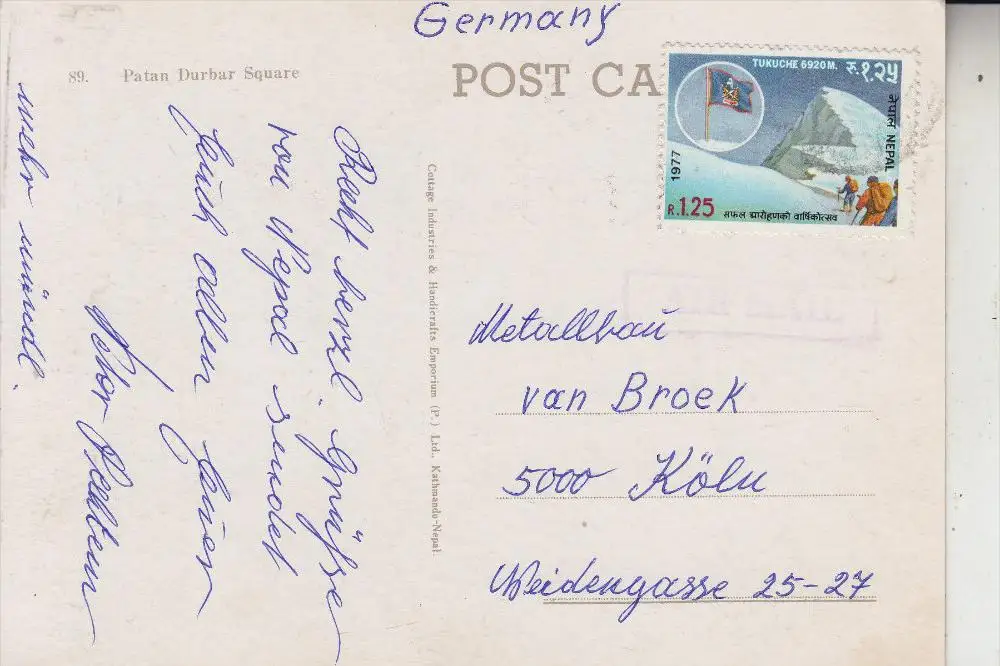 Germany
89. Patan Durbar Square
POST CA
TUKUCHE 6920M.
रु. १.२५
नेपाल NEPAL
1977
R.1.25
सफल आरोहणको वार्षिकोत्सव
Recht herzl. Grüße
von Nepal sendet
Euch allen Euer
Peter
mehr mündl.
Cottage Industries & Handicrafts Emporium (P.) Ltd., Kathmandu-Nepal.
Metallbau
van Broek
5000 Köln
Weidengasse 25-27